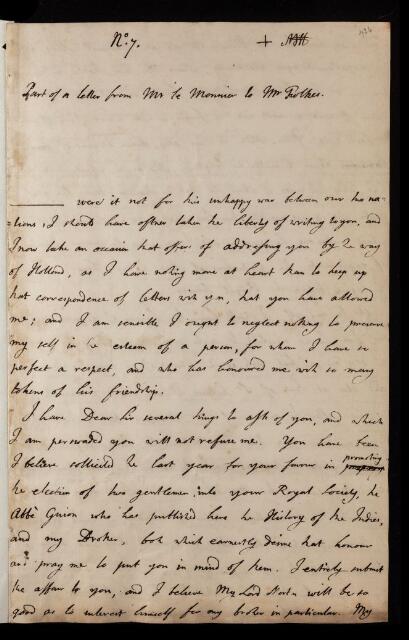 No. 7.
Part of a letter from Mr le Monnier to Mr Folkes.
were it not for this unhappy war between our two na-
=tions, I should have oftner taken the liberty of writing to you, and
I now take an occasion that offers of addressing you by the way
of Holland, as I have nothing more at heart than to keep up
that correspondence of letters with you, that you have allowed
me; and I am sensible I ought to neglect nothing to preserve
my self in the esteem of a person, for whom I have so
perfect a respect, and who has honoured me with so many
tokens of his friendship.
I have Dear Sir several things to ask of you, and which
I am perswaded you will not refuse me. You have been
I believe sollicited the last year for your favour in promoting
the election of two gentlemen into your Royal Society, the
Abbé Guion who has published here the History of the Indies,
and my Brother, both which earnestly desire that honour
and pray me to put you in mind of them. I entirely submit
the affair to you, and I believe My Lord Morton will be so
good as to interest himself for my brother in particular. My